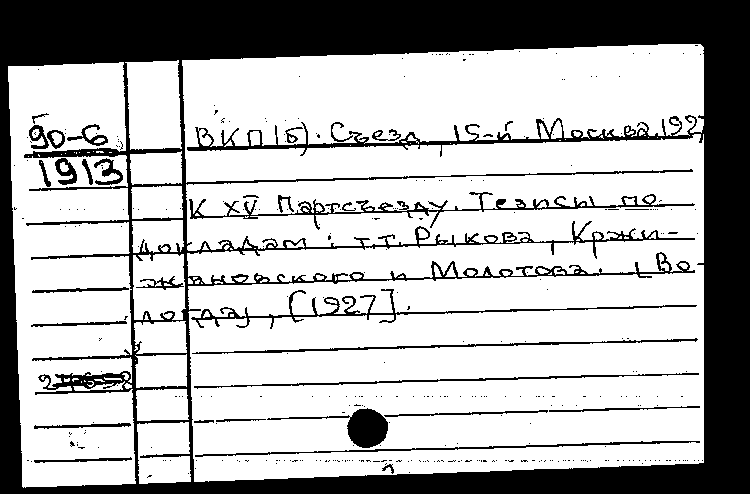 90-6
1913
ВКП(б). Съезд, 15-й. Москва. 1927
К XV Партсъезду. Тезисы по
докладам: т.т. Рыкова, Кржи-
жановского и Молотова. [Во-
логда], [1927].